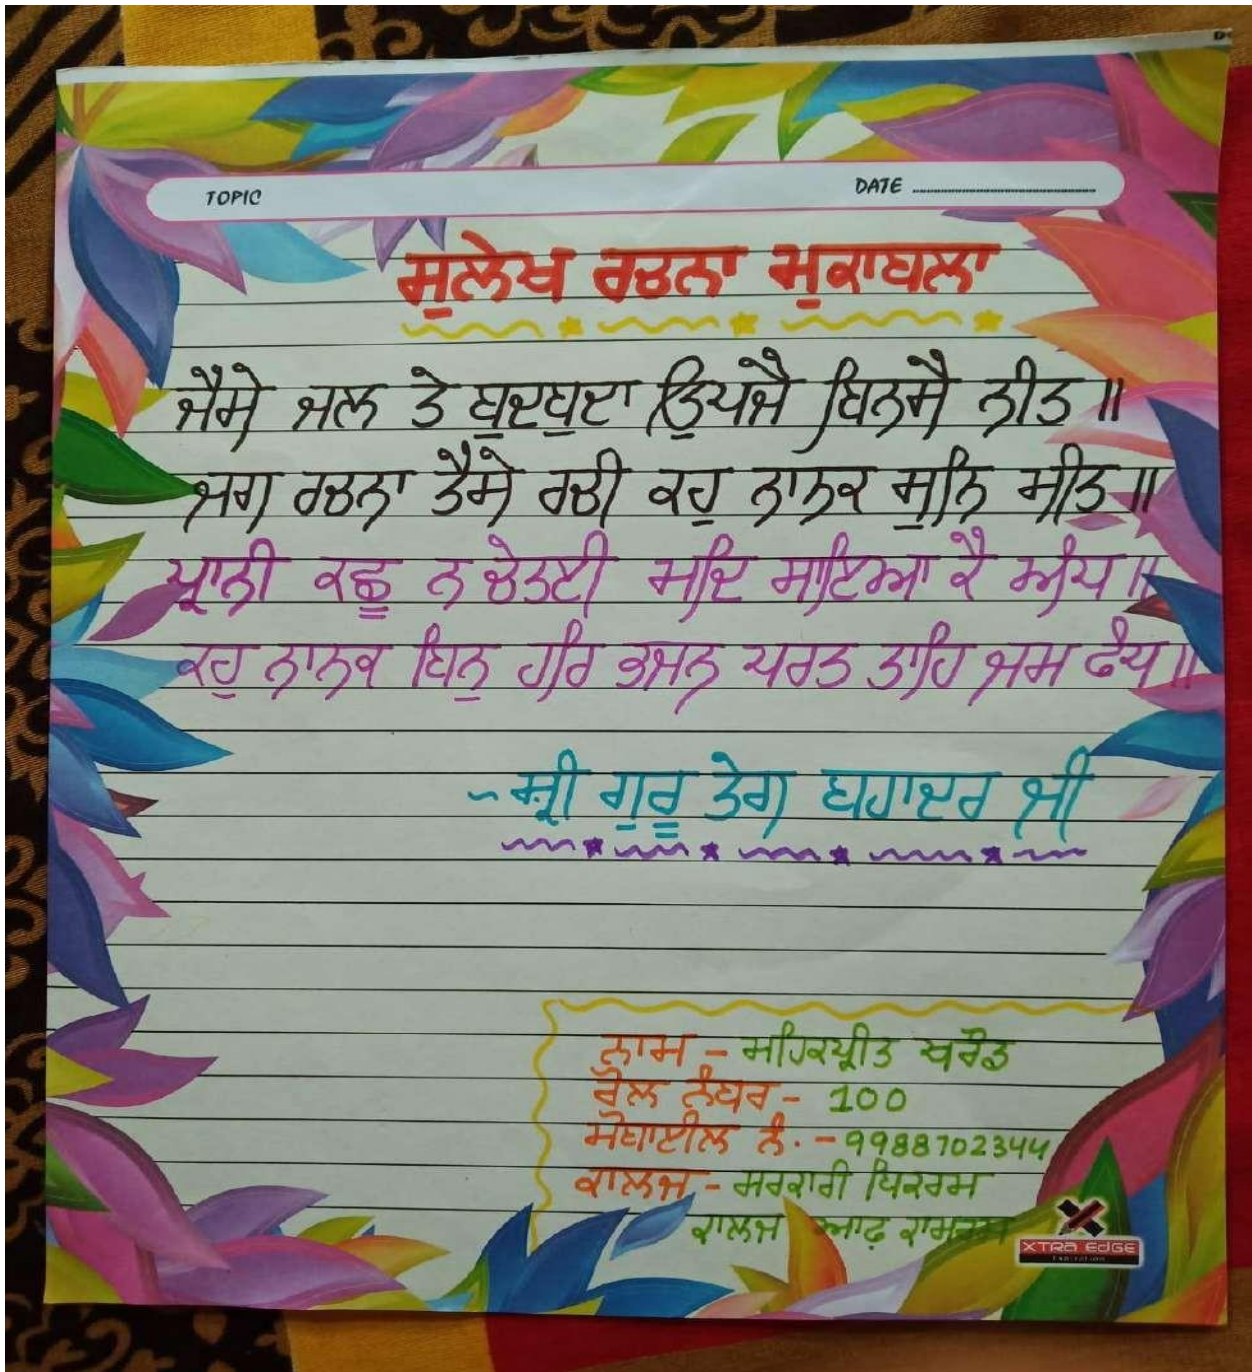 TOPIC DATE
ਸੁਲੇਖ ਰਚਨਾ ਮੁਕਾਬਲਾ
ਜੈਸੇ ਜਲ ਤੇ ਬੁਦਬੁਦਾ ਉਪਜੈ ਬਿਨਸੈ ਨੀਤ ॥
ਜਗ ਰਚਨਾ ਤੈਸੇ ਰਚੀ ਕਹੁ ਨਾਨਕ ਸੁਨਿ ਮੀਤ ॥
ਪ੍ਰਾਨੀ ਕਛੂ ਨ ਚੇਤਈ ਮਦਿ ਮਾਇਆ ਕੈ ਅੰਧ ॥
ਕਹੁ ਨਾਨਕ ਬਿਨੁ ਹਰਿ ਭਜਨ ਪਰਤ ਤਾਹਿ ਜਮ ਫੰਧ ॥
~ ਸ਼੍ਰੀ ਗੁਰੂ ਤੇਗ ਬਹਾਦਰ ਜੀ
ਨਾਮ - ਮਹਿਕਪ੍ਰੀਤ ਖਰੌਡ
ਰੋਲ ਨੰਬਰ - 100
ਮੋਬਾਈਲ ਨੰ. - 9988702344
ਕਾਲਜ - ਸਰਕਾਰੀ ਬਿਕਰਮ
ਕਾਲਜ ਆਫ਼ ਕਾਮਰਸ
XTRA EDGE